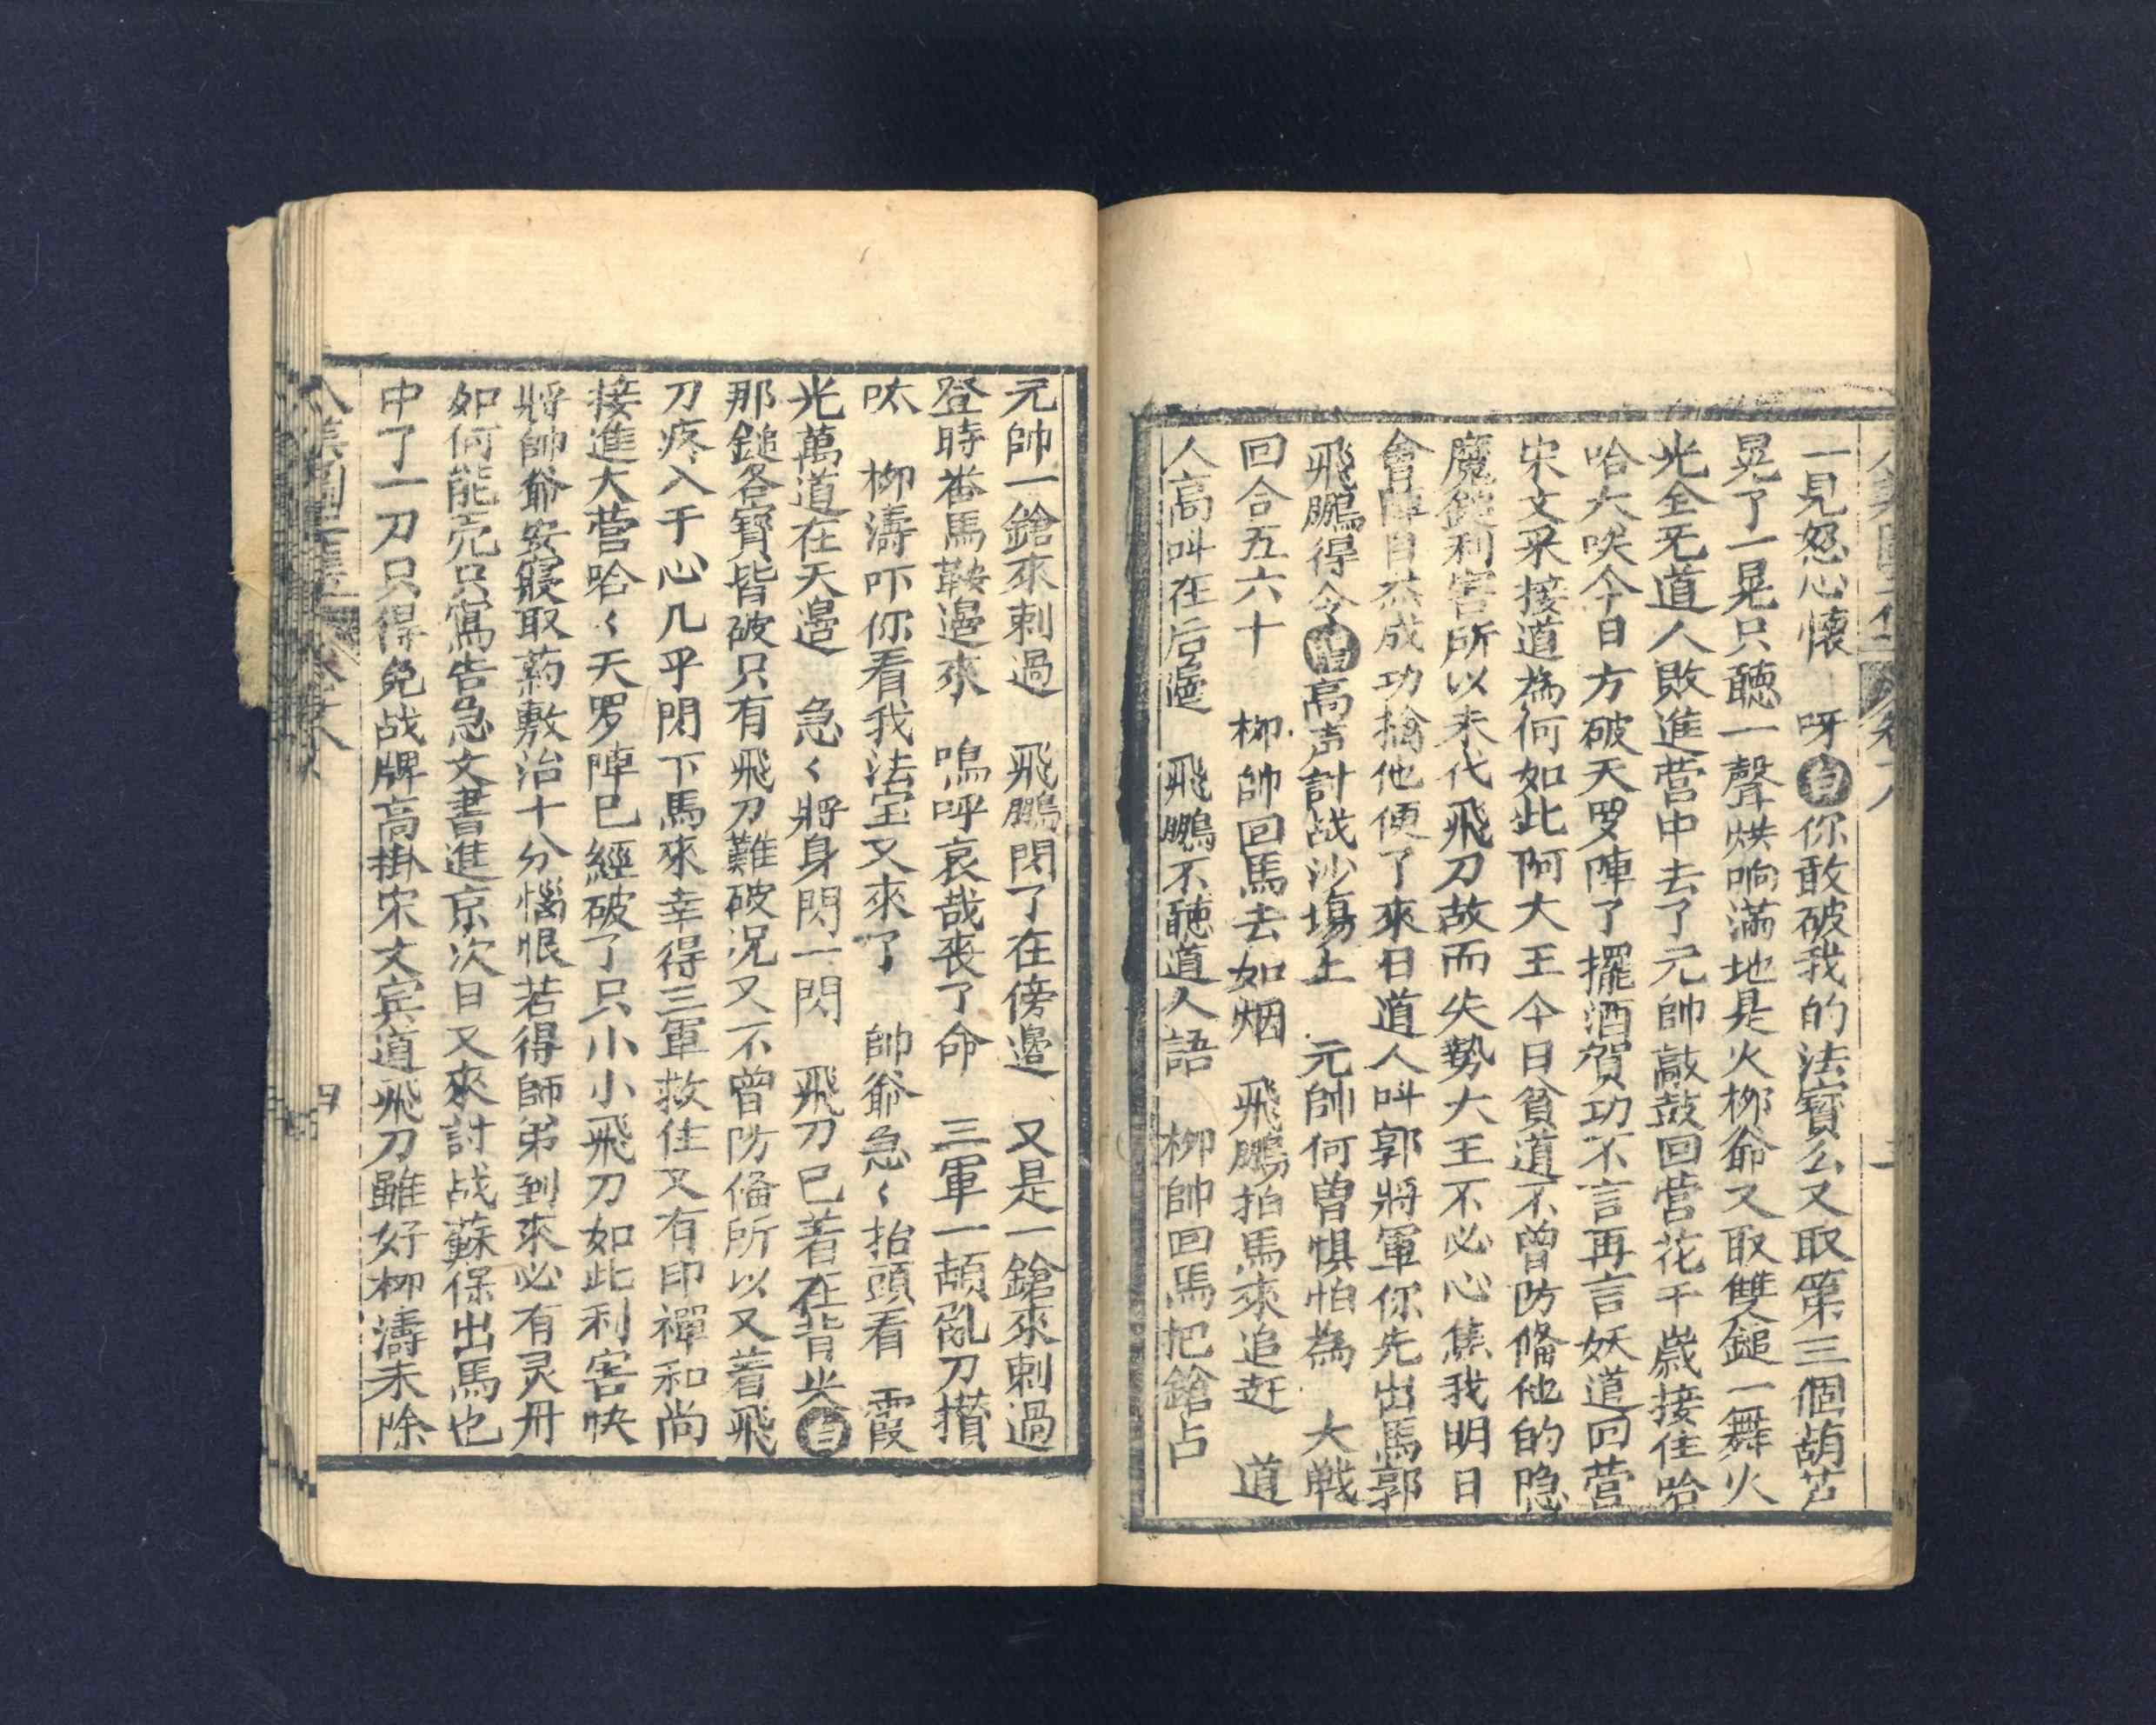 一見怒心懷　呀白你敢破我的法寶么又取第三個葫芦
晃了一晃只聽一聲烘响滿地是火柳爺又取雙鎚一舞火
光全无道人敗進营中去了元帥敲鼓回营花千歲接住哈
哈大唉今日方破天罗陣了擺酒賀功不言再言妖道回营
宋文采接道為何如此阿大王今日貧道不曾防偹他的隐
魔鎚利害所以未代飛刀故而失勢大王不必心焦我明日
會陣自然成功擒他便了來日道人叫郭將軍你先出馬郭
飛鵬得令白高声討战沙塲上　元帥何曾惧怕為　大戰
回合五六十　柳帥回馬去如烟　飛鵬拍馬來追赶　道
人高叫在后邊　飛鵬不聽道人語　柳帥回馬把鎗占
元帥一鎗來刺過　飛鵬閃了在傍邊　又是一鎗來刺過
登時番馬鞍邊來　嗚呼哀哉丧了命　三軍一頡乱刀攢
呔　柳濤吓你看我法宝又來了　帥爺急〻抬頭看　霞
光萬道在天邉　急〻將身閃一閃　飛刀已着在背尖白
那鎚各寶皆破只有飛刀難破况又不曾防偹所以又着飛
刀疼入于心几乎閃下馬來幸得三軍救住又有印禪和尚
接進大营哈〻天罗陣已經破了只小小飛刀如此利害快
將帥爺安寢取葯敷治十分惱恨若得師弟到來必有灵丹
如何能完只寫告急文書進京次日又來討战蘇保出馬也
中了一刀只得免战牌高掛宋文賓道飛刀雖好柳濤未除